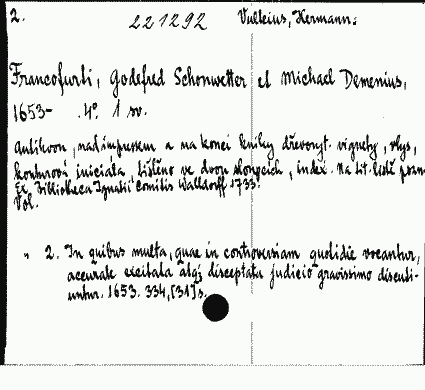 2. 221292 Vulteius, Hermann:
Francofurti, Godefred Schonwetter et Michael Demenius,
1653- .4° 1 sv.
antikvou, nad impresem a na konci knihy dřevoryt. vignety, vlys,
konturová iniciála, tištěno ve dvou sloupcích, index. Na tit. listě pozn.
Ex Bibliotheca Ignatii Comitis Walldorff 1733.
Vol.
" 2. In quibus multa, quae in controversiam quotidie vocantur,
accurate excitata atqj disceptata judicio gravissimo discuti-
untur. 1653. 334,[31]s.